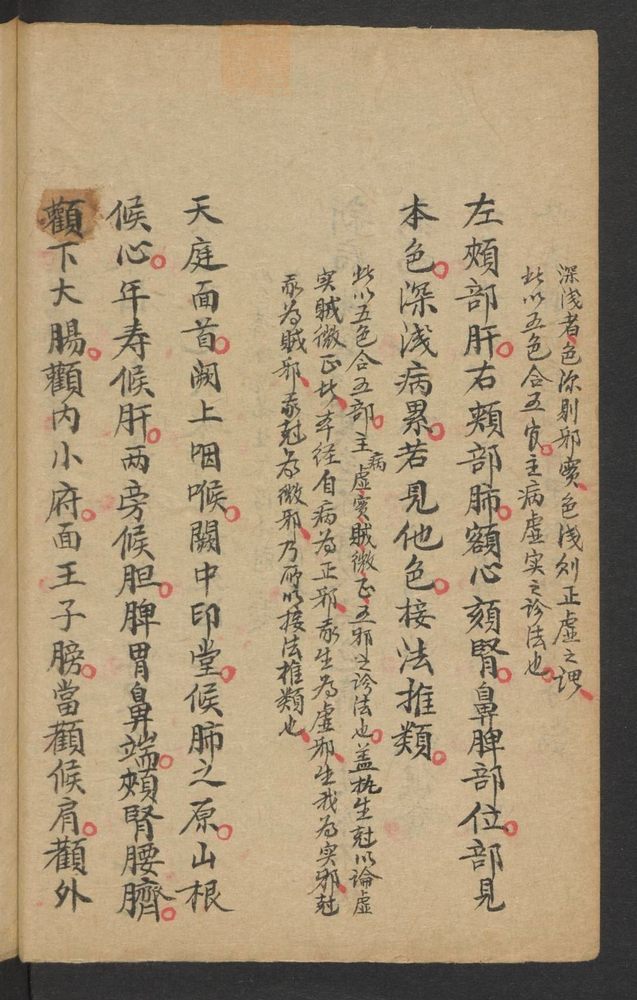 深淺者色深則邪實色浅則正虛之谓
此以五色合五官主病虛实之诊法也
左頰部肝右頰部肺額心頦腎鼻脾部位部見
本色深淺病累若見他色按法推類
此以五色合五部主病虛实賊微正五邪之诊法也盖执生尅以論虛
实賊微正此本经自病为正邪我生为虛邪生我为实邪尅
我为賊邪我尅为微邪乃所以按法推類也
天庭面首阙上咽喉闕中印堂候肺之原山根
候心年寿候肝两旁候胆脾胃鼻端頰腎腰臍
顴下大腸顴内小府面王子膀當顴候肩顴外